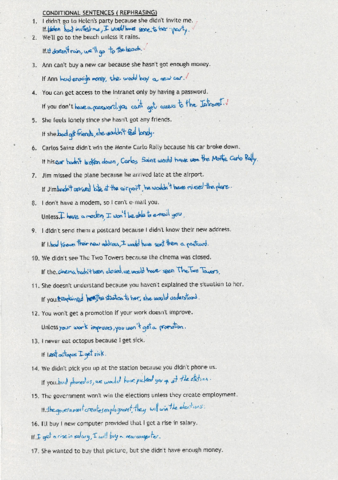 CONDITIONAL SENTENCES ( REPHRASING)
1. I didn't go to Helen's party because she didn't invite me.
If Helen had invited me, I would have gone to her party.
2. We'll go to the beach unless it rains.
If it doesn't rain, we'll go to the beach.
3. Ann can't buy a new car because she hasn't got enough money.
If Ann had enough money, she would buy a new car.
4. You can get access to the intranet only by having a password.
If you don't have a password, you can't get access to the Intranet.
5. She feels lonely since she hasn't got any friends.
If she had got friends, she wouldn't feel lonely.
6. Carlos Sainz didn't win the Monte Carlo Rally because his car broke down.
If his car hadn't broken down, Carlos Sainz would have won the Monte Carlo Rally.
7. Jim missed the plane because he arrived late at the airport.
If Jim hadn't arrived late at the airport, he wouldn't have missed the plane.
8. I don't have a modem, so I can't e-mail you.
Unless I have a modem, I won't be able to e-mail you.
9. I didn't send them a postcard because I didn't know their new address.
If I had known their new address, I would have sent them a postcard.
10. We didn't see The Two Towers because the cinema was closed.
If the cinema hadn't been closed, we would have seen The Two Towers.
11. She doesn't understand because you haven't explained the situation to her.
If you explained the situation to her, she would understand.
12. You won't get a promotion if your work doesn't improve.
Unless your work improves, you won't get a promotion.
13. I never eat octopus because I get sick.
If I eat octopus I get sick.
14. We didn't pick you up at the station because you didn't phone us.
If you had phoned us, we would have picked you up at the station.
15. The government won't win the elections unless they create employment.
If the government create employment, they will win the elections.
16. I'll buy I new computer provided that I got a rise in salary.
If I get a rise in salary, I will buy a new computer.
17. She wanted to buy that picture, but she didn't have enough money.